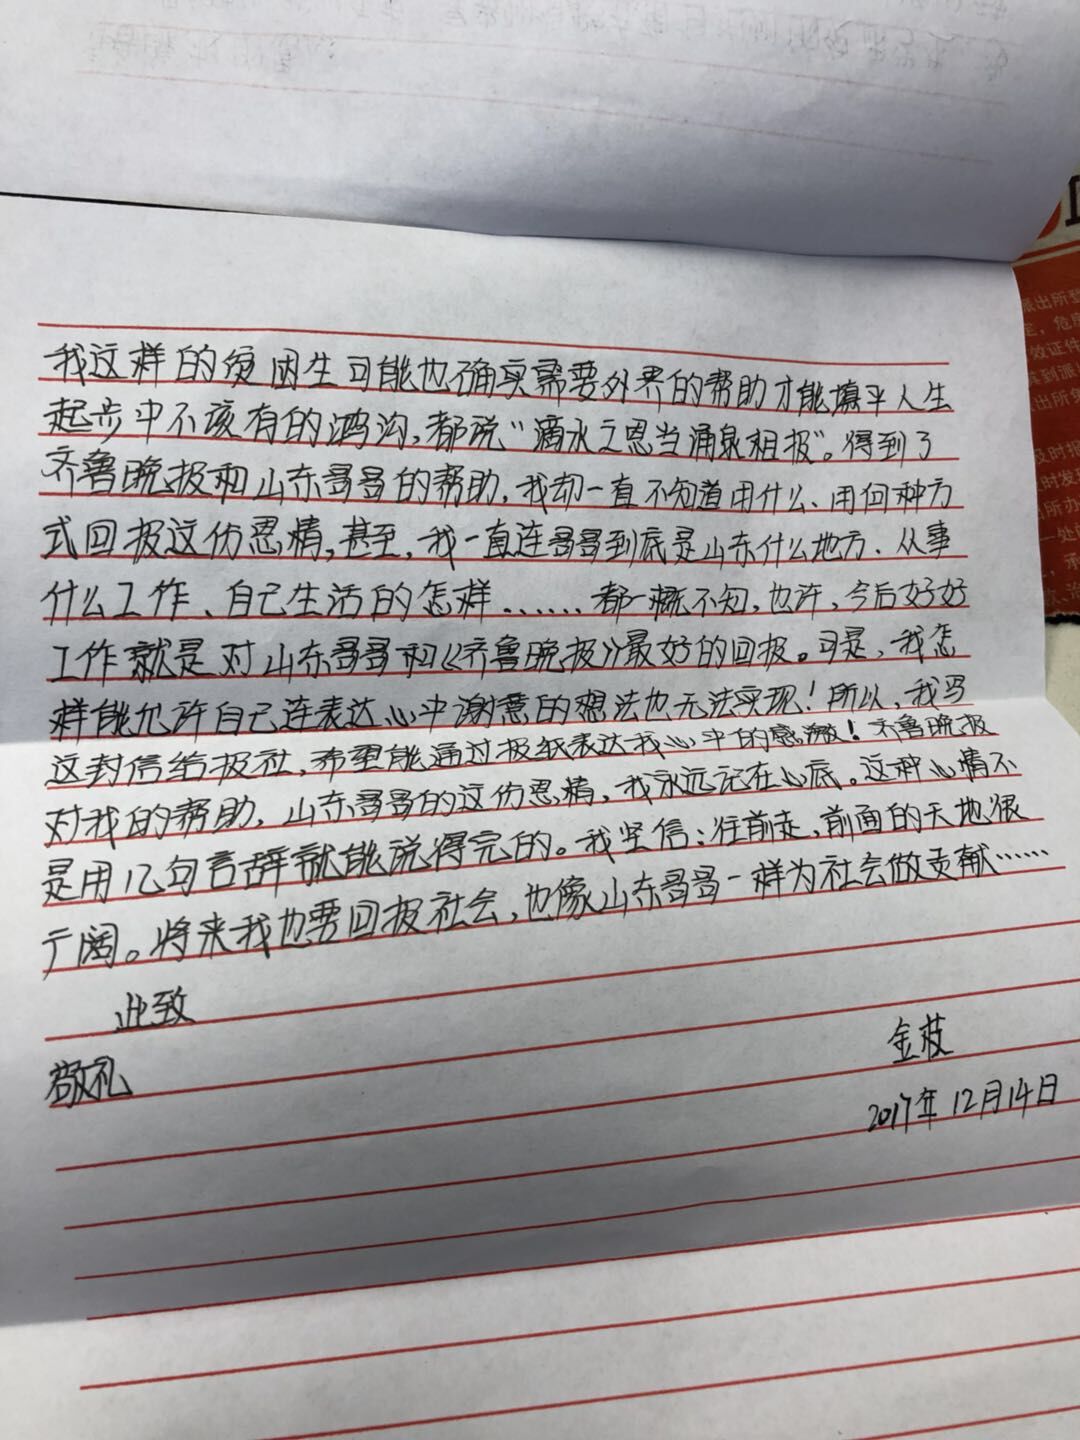 我这样的贫困生可能也确实需要外界的帮助才能填平人生
起步中不该有的鸿沟，都说“滴水之恩当涌泉相报”。得到了
齐鲁晚报和山东哥哥的帮助，我却一直不知道用什么、用何种方
式回报这份恩情，甚至，我一直连哥哥到底是山东什么地方、从事
什么工作、自己生活的怎样……都一概不知，也许，今后好好
工作就是对山东哥哥和《齐鲁晚报》最好的回报。可是，我怎
样能允许自己连表达心中谢意的想法也无法实现！所以，我写
这封信给报社，希望能通过报纸表达我心中的感激！齐鲁晚报
对我的帮助，山东哥哥的这份恩情，我永远记在心底。这种心情不
是用几句言辞就能说得完的。我坚信：往前走，前面的天地很
广阔。将来我也要回报社会，也像山东哥哥一样为社会做贡献……
此致
敬礼
金枝
2017年12月14日
派出所登
效证件
到派出
出所
及时报
时发
所办
一处